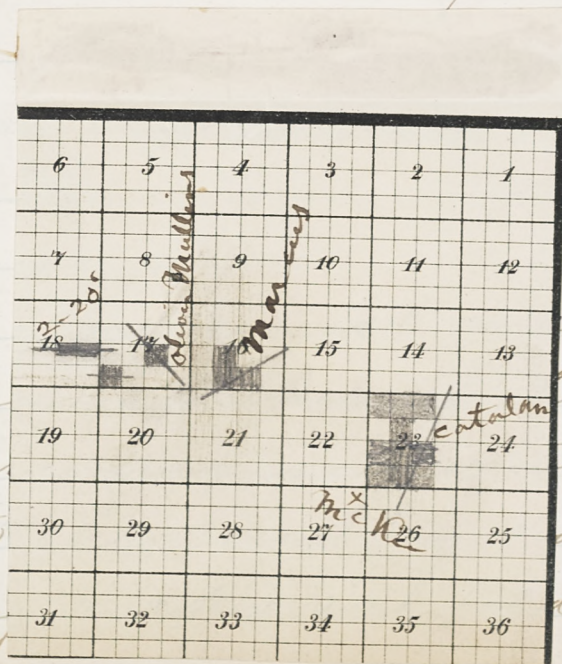 6 5 4 3 2 1
7 8 9 10 11 12
18 17 16 15 14 13
19 20 21 22 23 24
30 29 28 27 26 25
31 32 33 34 35 36
Mullins
Marcus
Catalan